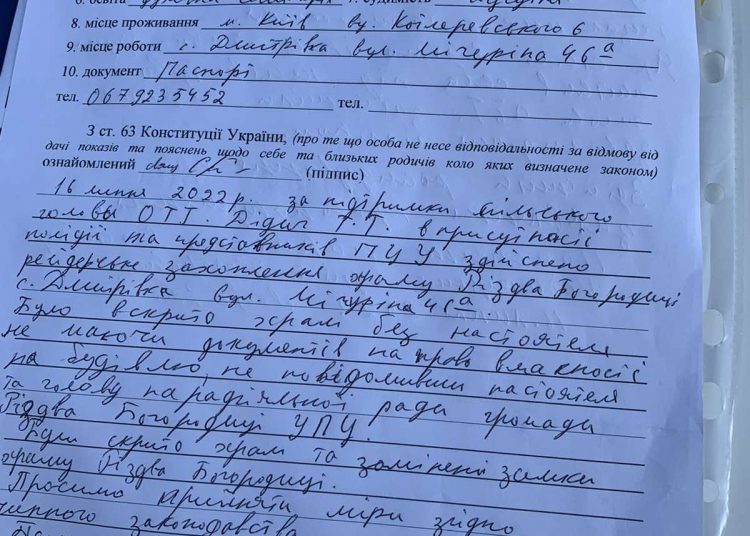 8. місце проживання м. Київ вул. Коцюревського 6
9. місце роботи с. Дмитрівка вул. Мічуріна 46 а
10. документ Паспорт
тел. 0679235452 тел.
З ст. 63 Конституції України, (про те що особа не несе відповідальності за відмову від
дачі показів та пояснень щодо себе та близьких родичів коло яких визначене законом)
ознайомлений (підпис)
16 липня 2022 р. за підтримки
голови ОТГ. Дідич Т.Т. в присутності
поліції та представників ПЦУ здійснено
рейдерське захоплення храму Різдва Богородиці
с. Дмитрівка вул. Мічуріна 46а.
Було вскрито храм без настоятеля
не маючи документів на право власності
на будівлю, не повідомивши настоятеля
та голову парафіяльної ради громади
Різдва Богородиці УПЦ.
Були скрито храм та замінені замки
храму Різдва Богородиці.
Просимо прийняти міри згідно
чинного законодавства